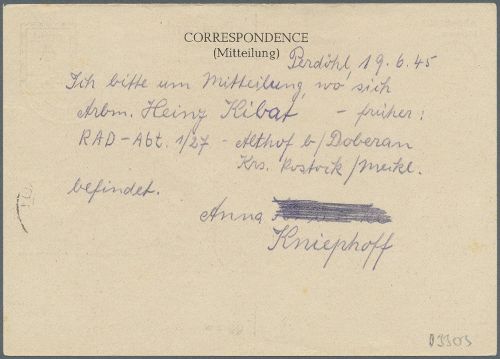 CORRESPONDENCE
(Mitteilung)
Perdöhl, 19.6.45
Ich bitte um Mitteilung, wo sich
Arbm. Heinz Kibat - früher:
RAD-Abt. 1/27 - Althof b/Doberan
Krs. Rostock/Meckl.
befindet.
Anna
Kniephoff
03303